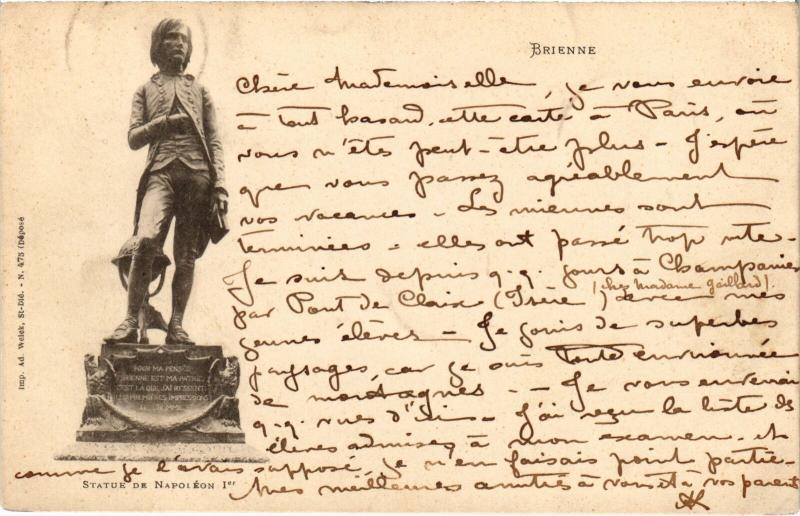 BRIENNE
Chère Mademoiselle, je vous envoie
à tout hasard, cette carte à Paris, où
vous n'êtes peut-être plus - J'espère
que vous passez agréablement
vos vacances - Les miennes sont
terminées - elles ont passé trop vite -
Je suis depuis q.q. jours à Champanier
(chez Madame Gaillard)
par Pont de Claix (Isère) avec mes
jeunes élèves - Je jouis de superbes
paysages, car je suis toute environnée
de montagnes - - Je vous enverrai
q.q. vues d'ici - J'ai reçu la liste des
élèves admises à mon examen - et
comme je l'avais supposé, je n'en faisais point partie -
Mes meilleures amitiés à vous et à vos parents
AL
POUR MA PENSÉE
BRIENNE EST MA PATRIE
C'EST LÀ QUE J'AI RESSENTI
LES PREMIÈRES IMPRESSIONS
DE L'HOMME
STATUE DE NAPOLÉON Ier
Imp. Ad. Weick, St-Dié. - N. 475 (Déposé